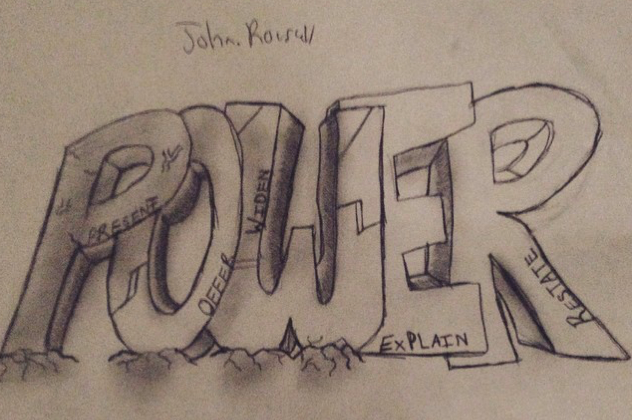 John.
POWER
PRESENT
OFFER
WIDEN
EXPLAIN
RESTATE